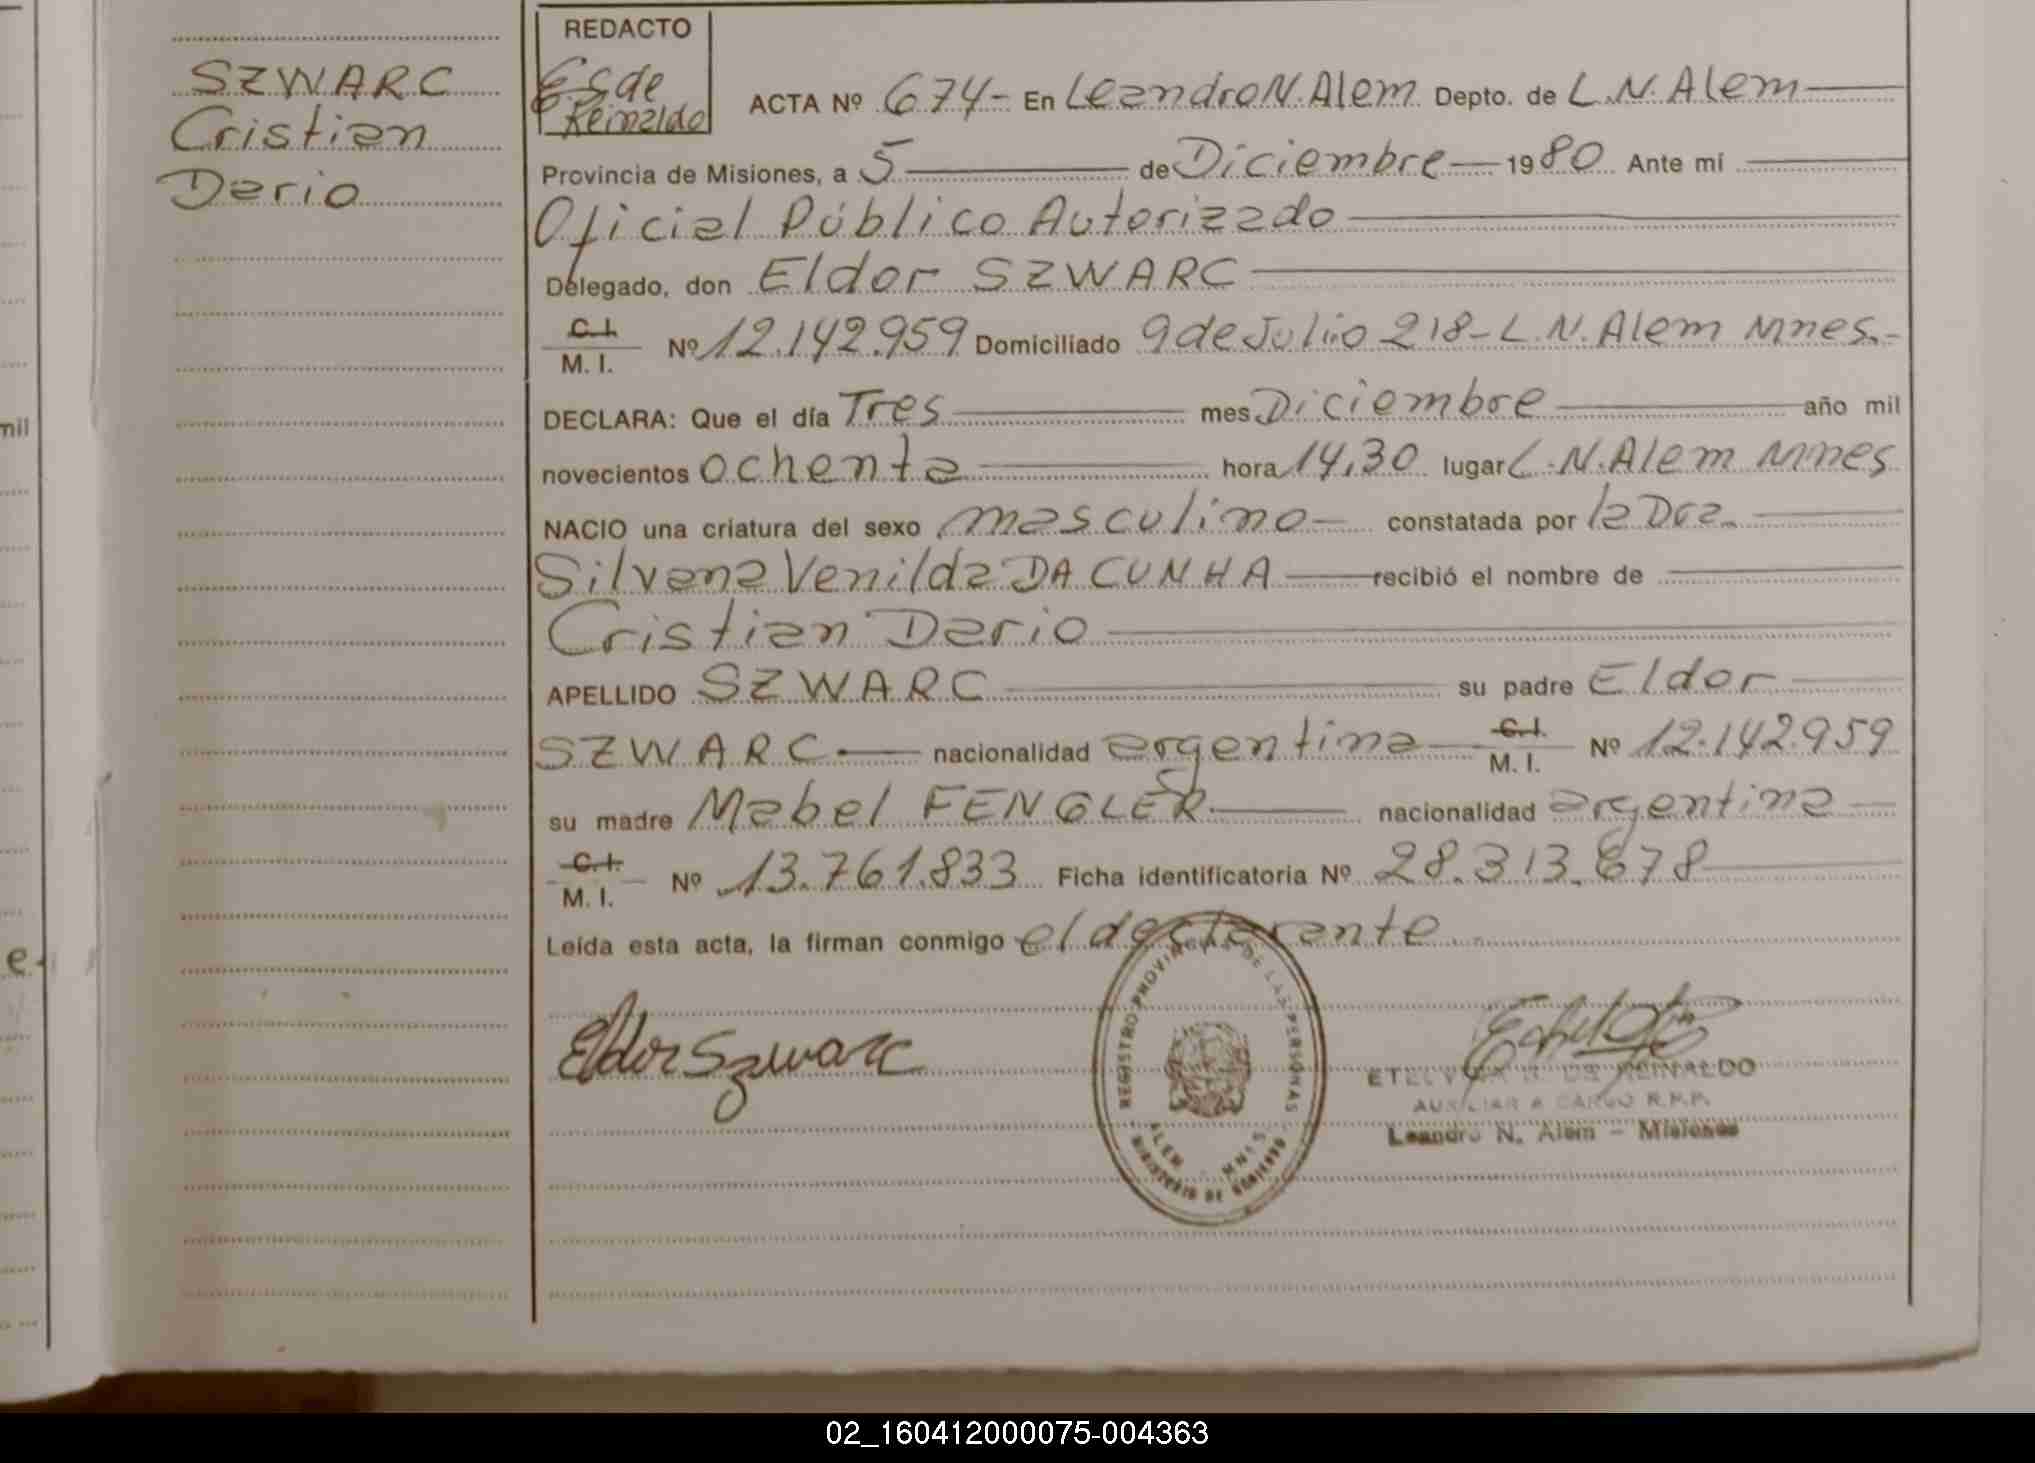 SZWARC
Cristian
Dario
REDACTO
E.S de
Reinaldo
ACTA Nº 674- En Leandro N. Alem Depto. de L.N. Alem
Provincia de Misiones, a 5 de Diciembre 1980 Ante mí
Oficial Público Autorizado
Delegado, don Eldor SZWARC
C.I.
M. I. Nº 12.142.959 Domiciliado 9 de Julio 218 - L.N. Alem Mnes.-
DECLARA: Que el día Tres mes Diciembre año mil
novecientos ochenta hora 14,30 lugar L.N. Alem Mnes
NACIO una criatura del sexo masculino constatada por la Dra.
Silvana Venilda DA CUNHA recibió el nombre de
Cristian Dario
APELLIDO SZWARC su padre Eldor
SZWARC nacionalidad argentina C.I. M. I. Nº 12.142.959
su madre Mabel FENGLER nacionalidad argentina
C.I.
M. I. Nº 13.761.833 Ficha identificatoria Nº 28.313.678
Leída esta acta, la firman conmigo el declarante
Eldor Szwarc
REGISTRO PROVINCIAL DE LAS PERSONAS
ALEM MNES
MINISTERIO DE GOBIERNO
DE REINALDO
AUXILIAR A CARGO R.P.P.
Leandro N. Alem - Misiones
mil
e.
02_160412000075-004363